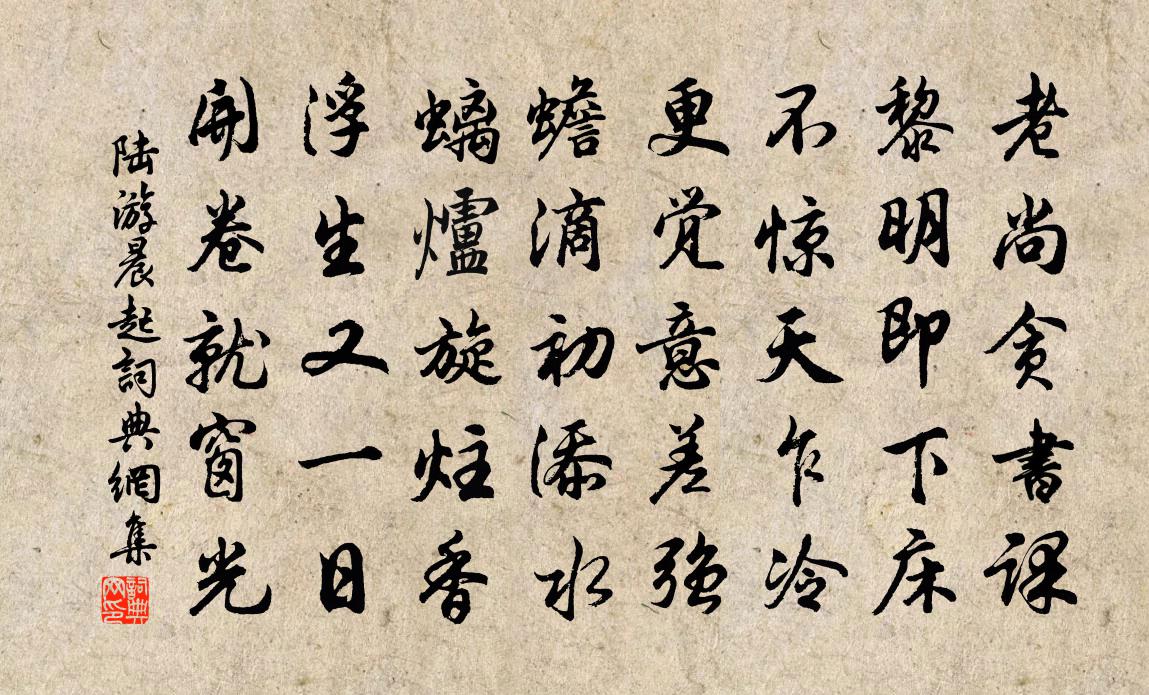 老尚贪書課
黎明即下床
不惊天乍冷
更觉意差强
蟾滴初添水
螭爐旋炷香
浮生又一日
開卷就窗光
陆游晨起詞典網集
詞典
网印